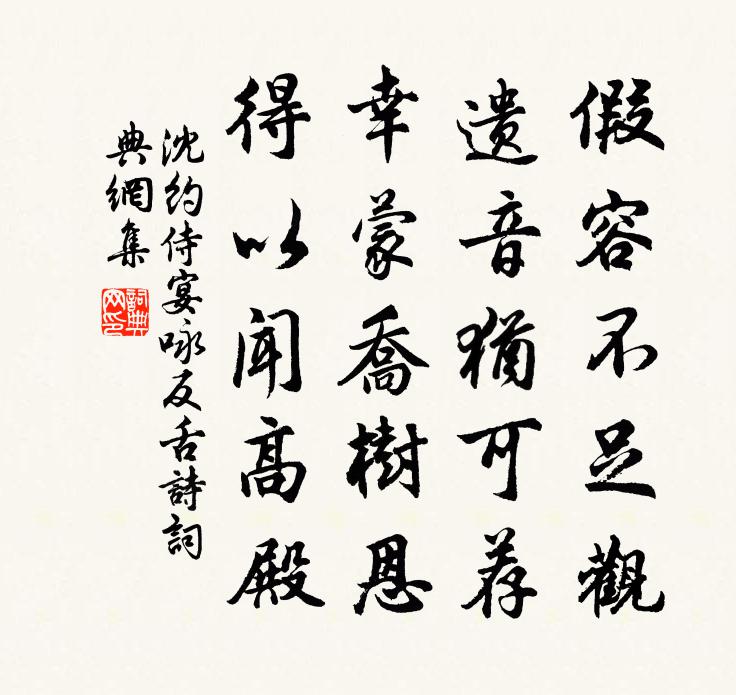 假容不足觀
遗音猶可荐
幸蒙喬樹恩
得以闻高殿
沈約侍宴咏反舌詩詞
典網集
詞典
网印